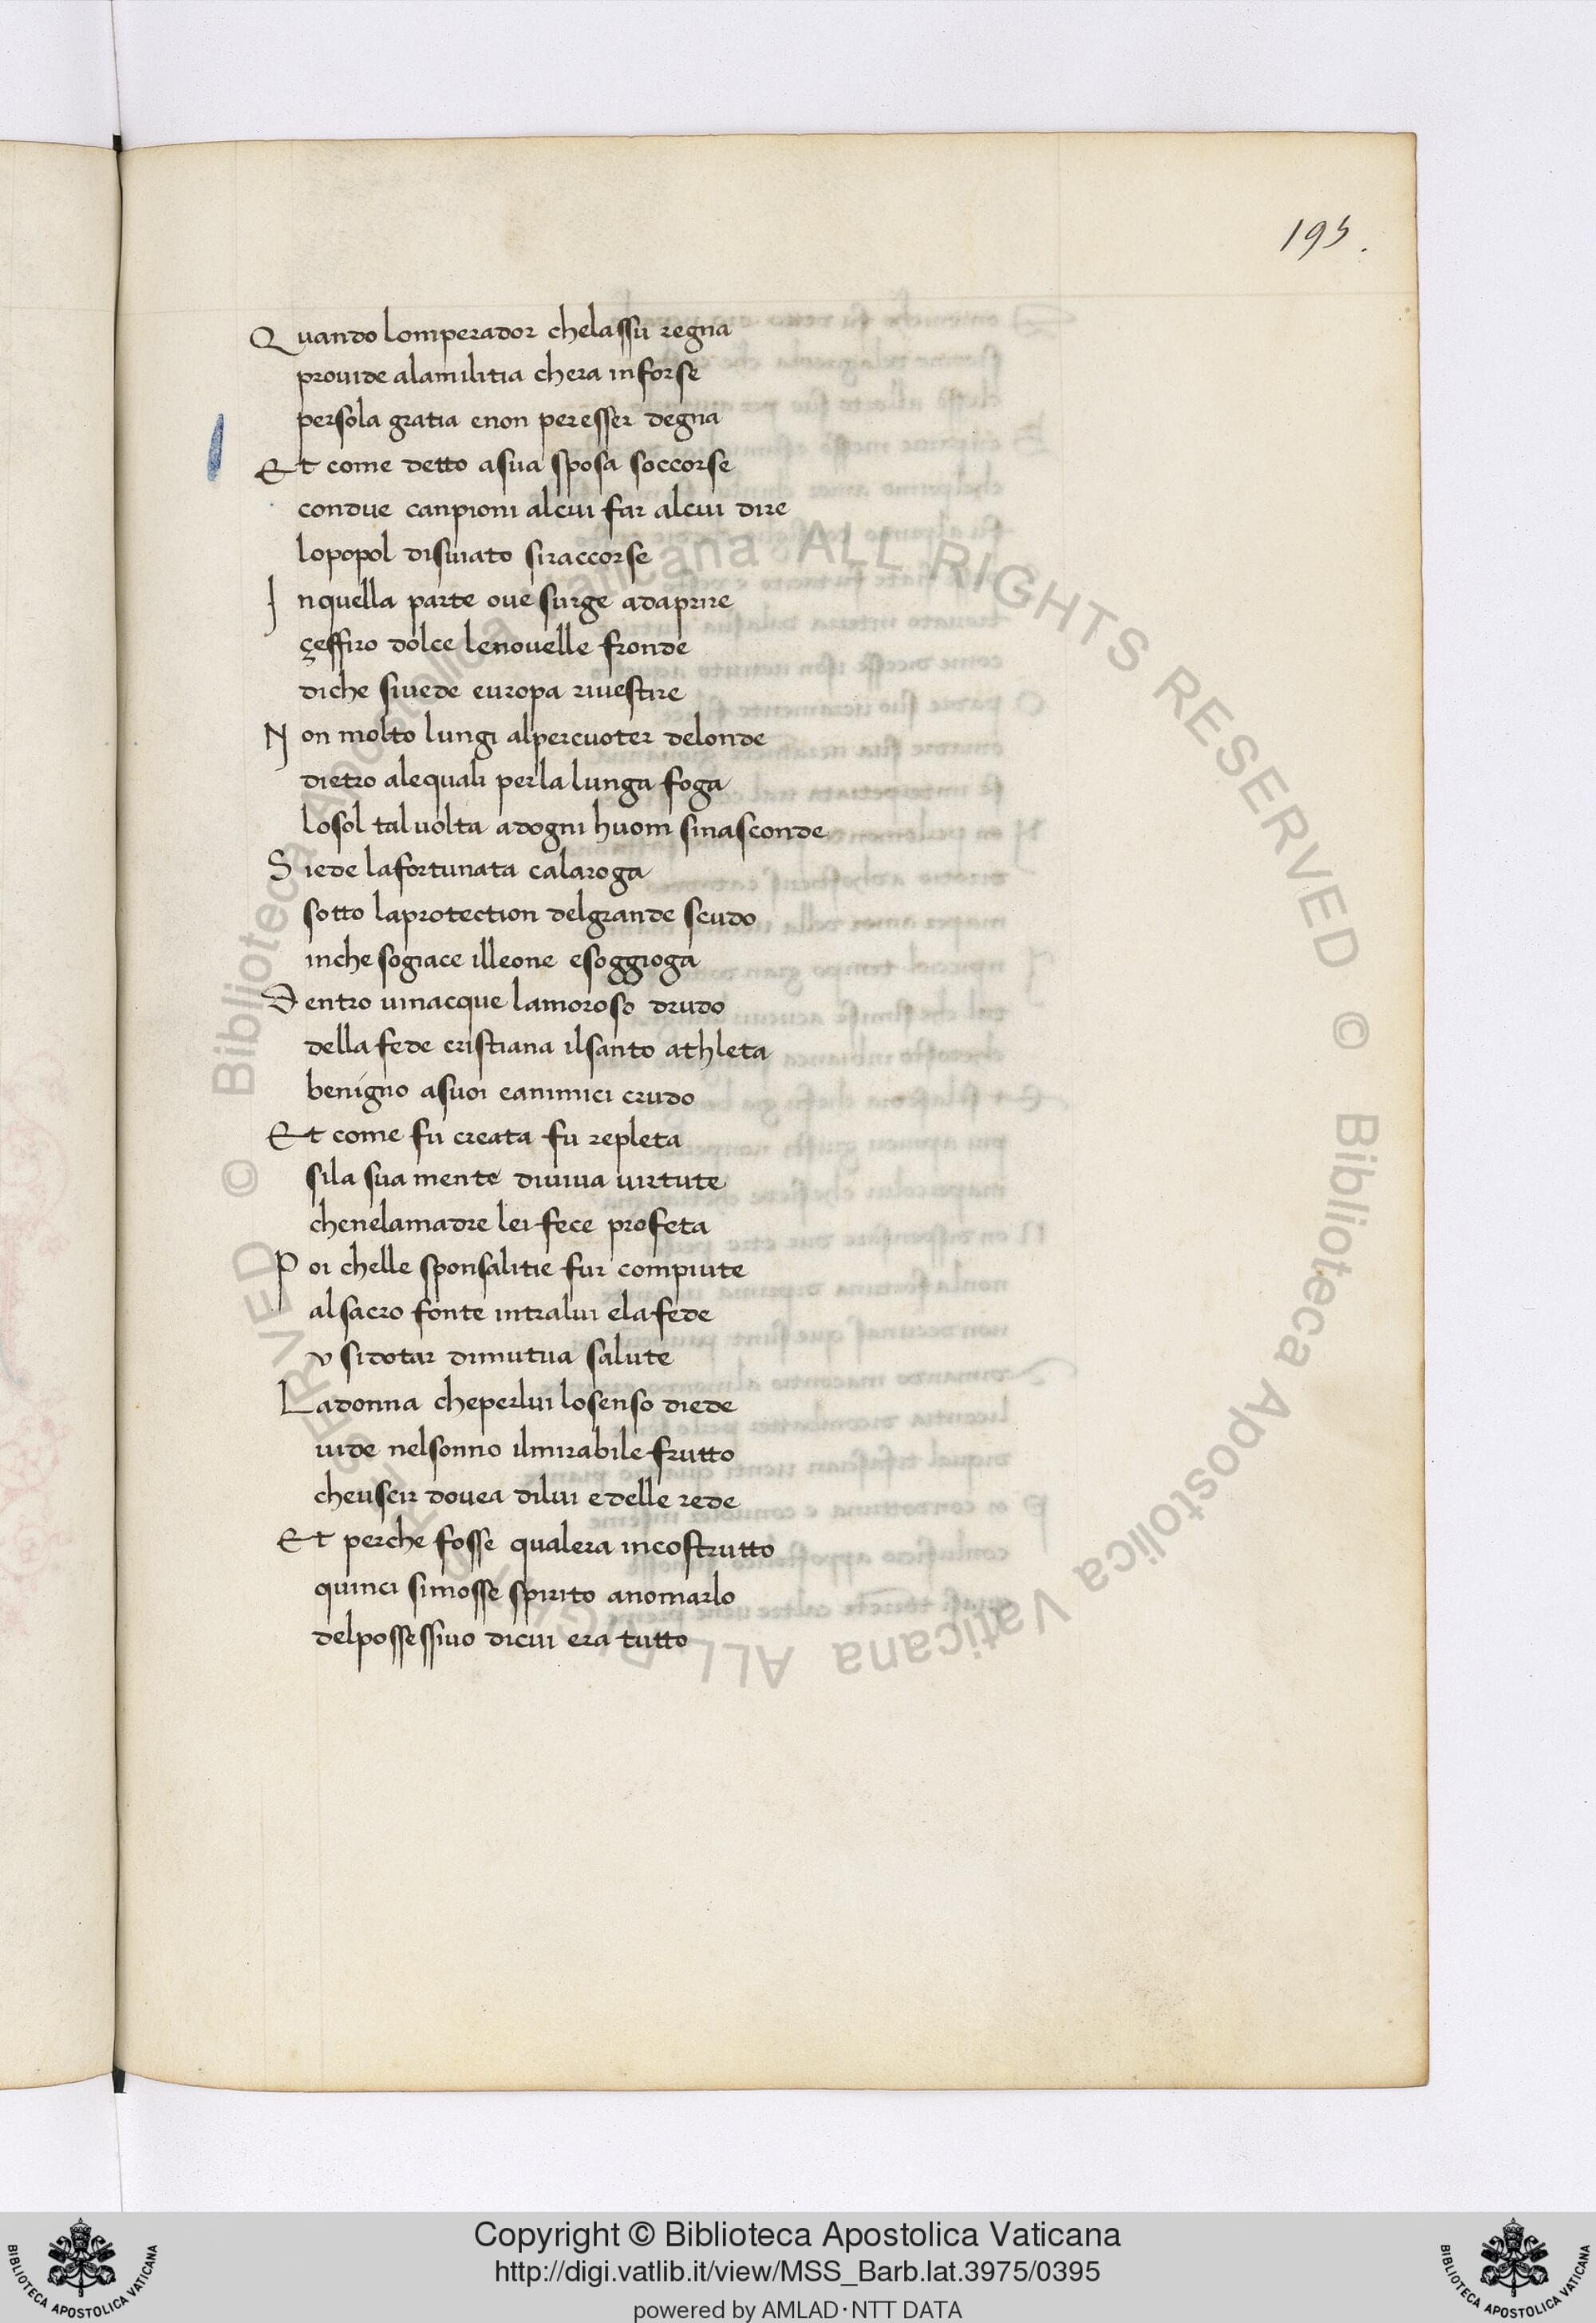 195.
Quando lomperador chelassu regna
prouide alamilitia chera inforse
persola gratia enon peresser degna
Et come detto asua sposa soccorse
condue canpioni alcui far alcui dire
lopopol disuiato siraccorse
Inquella parte oue surge adaprire
çeffiro dolce lenouelle fronde
diche siuede europa riuestire
Non molto lungi alpercuoter delonde
dietro alequali perla lunga foga
losol taluolta adogni huom sinasconde
Siede lafortunata calaroga
sotto laprotection delgrande scudo
inche sogiace illeone esoggioga
Dentro uinacque lamoroso drudo
della fede cristiana ilsanto athleta
benigno asuoi eanimici crudo
Et come fu creata fu repleta
sila sua mente diuiua uirtute
chenelamadre lei fece profeta
Poi chelle sponsalitie fur compiute
alsacro fonte intralui elafede
v sidotar dimutua salute
Ladonna cheperlui losenso diede
uide nelsonno ilmirabile frutto
cheuscir douea dilui edelle rede
Et perche fosse qualera incostrutto
quinci simosse spirito anomarlo
delpossessiuo dicui era tutto
Copyright © Biblioteca Apostolica Vaticana
http://digi.vatlib.it/view/MSS_Barb.lat.3975/0395
powered by AMLAD·NTT DATA
BIBLIOTECA APOSTOLICA VATICANA
BIBLIOTECA APOSTOLICA VATICANA
© Biblioteca Apostolica Vaticana ALL RIGHTS RESERVED
© Biblioteca Apostolica Vaticana ALL RIGHTS RESERVED